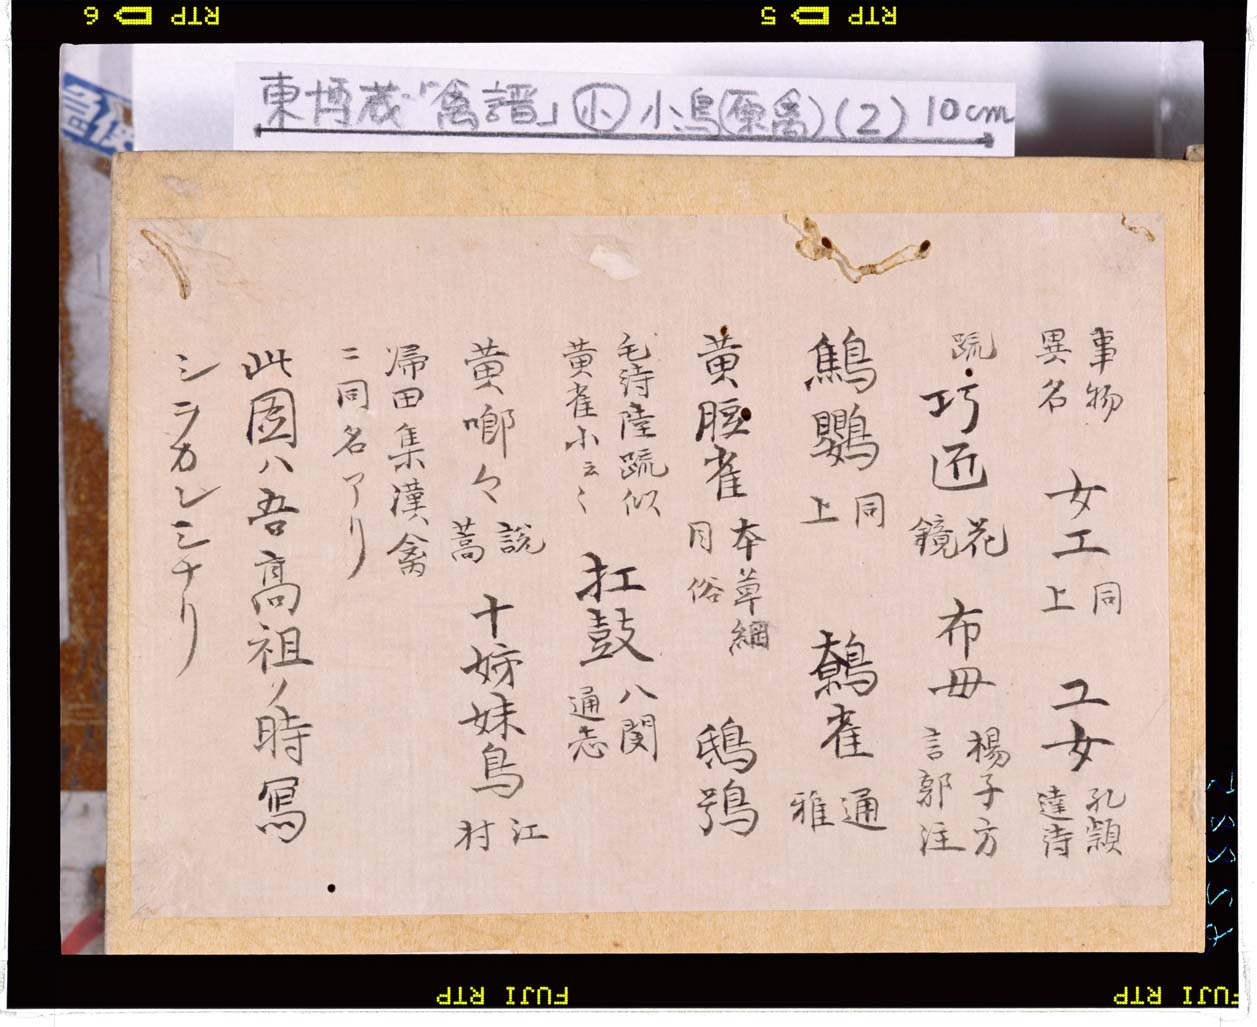 RTP 6
RTP 5
東博蔵「禽譜」小 小鳥(原禽)(2) 10cm
事物
異名
女工
同
上
工女
孔穎
達詩
疏
巧匠
花
鏡
布毋
楊子方
言郭注
鷦鸎
同
上
鷯雀
通
雅
黄脰雀
本草綱
目俗
鴟鴞
毛詩陸疏似
黄雀小云々
扛鼓
八閩
通志
黄啣々
説
蒿
十姉妹鳥
江
村
帰田集漢禽
ニ同名アリ
此図ハ吾高祖ノ時写
シヲカレシナリ
FUJI RTP
FUJI RTP